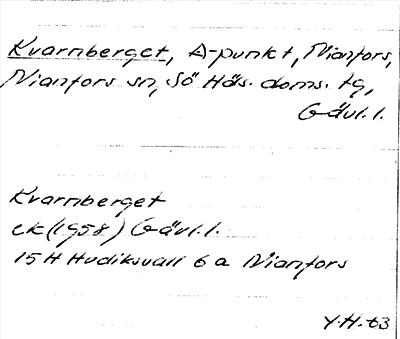 Kvarnberget, A-punkt, Nianfors,
Nianfors sn, Sö Häs. doms. tg,
Gävl.l.
Kvarnberget
ek (1958) Gävl.l.
15 H Hudiksvall 6 a Nianfors
Y.H.-63